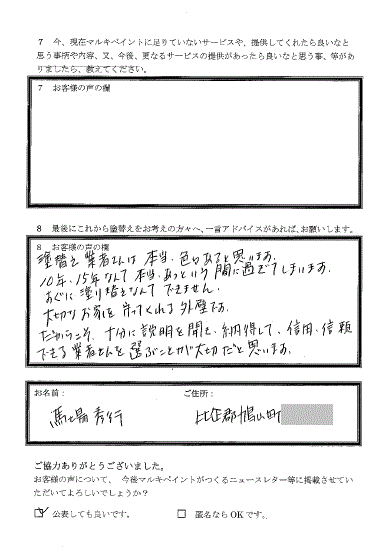 7 今、現在マルキペイントに足りていないサービスや、提供してくれたら良いなと
思う事柄や内容、又、今後、更なるサービスの提供があったら良いなと思う事、等があ
りましたら、教えてください。
7 お客様の声の欄
8 最後にこれから塗替えをお考えの方々へ、一言アドバイスがあれば、お願いします。
8 お客様の声の欄
塗替え業者さんは本当、色々あると思います。
10年、15年なんて本当、あっという間に過ぎてしまいます。
すぐに塗り替えなんてできません。
大切なお家を守ってくれる外壁です。
だからこそ、十分に説明を聞き、納得して、信用、信頼
できる業者さんを選ぶことが大切だと思います。
お名前： ご住所：
馬場秀行 比企郡鳩山町
ご協力ありがとうございました。
お客様の声について、 今後マルキペイントがつくるニュースレター等に掲載させてい
ただいてよろしいでしょうか？
公表しても良いです。 匿名ならOKです。